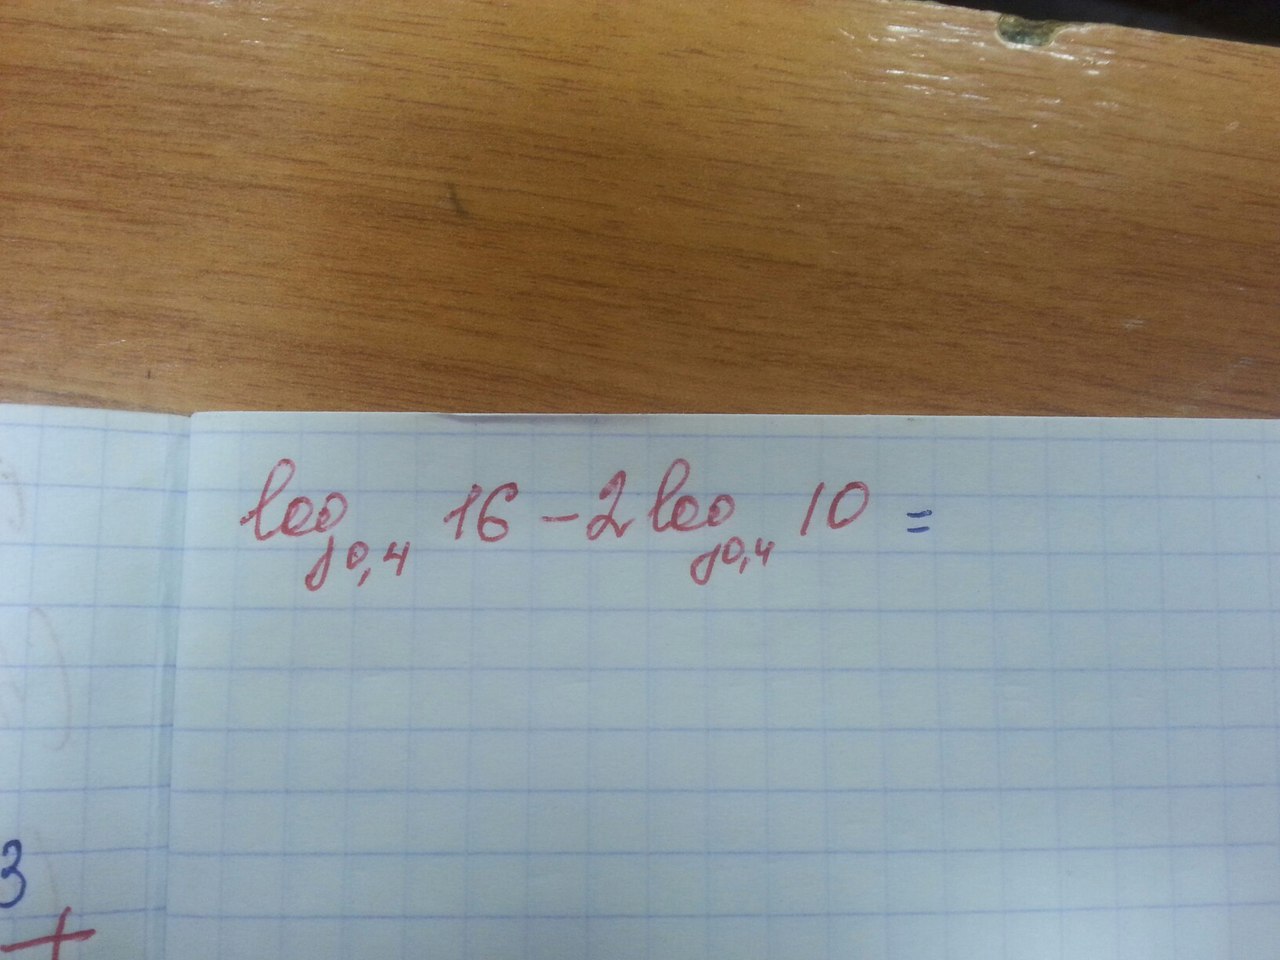 log₀,₄ 16 - 2 log₀,₄ 10 =
3
+